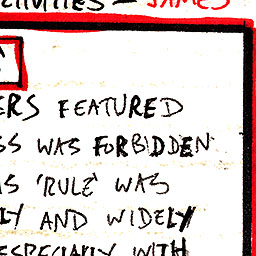 ACTIVITIES — JAMES
ERS FEATURED
SS WAS FORBIDDEN
S 'RULE' WAS
LY AND WIDELY
ESPECIALLY WITH